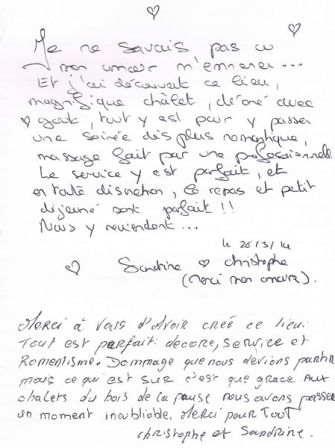 Je ne savais pas où
mon amour m'emmener...
Et j'ai découvert ce lieu,
magnifique châlet, décoré avec
goût, tout y est pour y passer
une soirée des plus romantique,
massage fait par une professionnelle
Le service y est parfait, et
en toute discretion, le repas et petit
déjeuné sont parfait !!
Nous y reviendront...
le 26/3/14
Sandrine ♡ christophe
(merci mon amour).
Merci à vous d'avoir créé ce lieu.
Tout est parfait: decore, service et
Romentisme. Dommage que nous devions partir
mais ce qui est sur c'est que grace aux
chalets du bois de la pause nous avons passer
un moment inoubliable. Merci pour Tout
christophe et Sandrine.